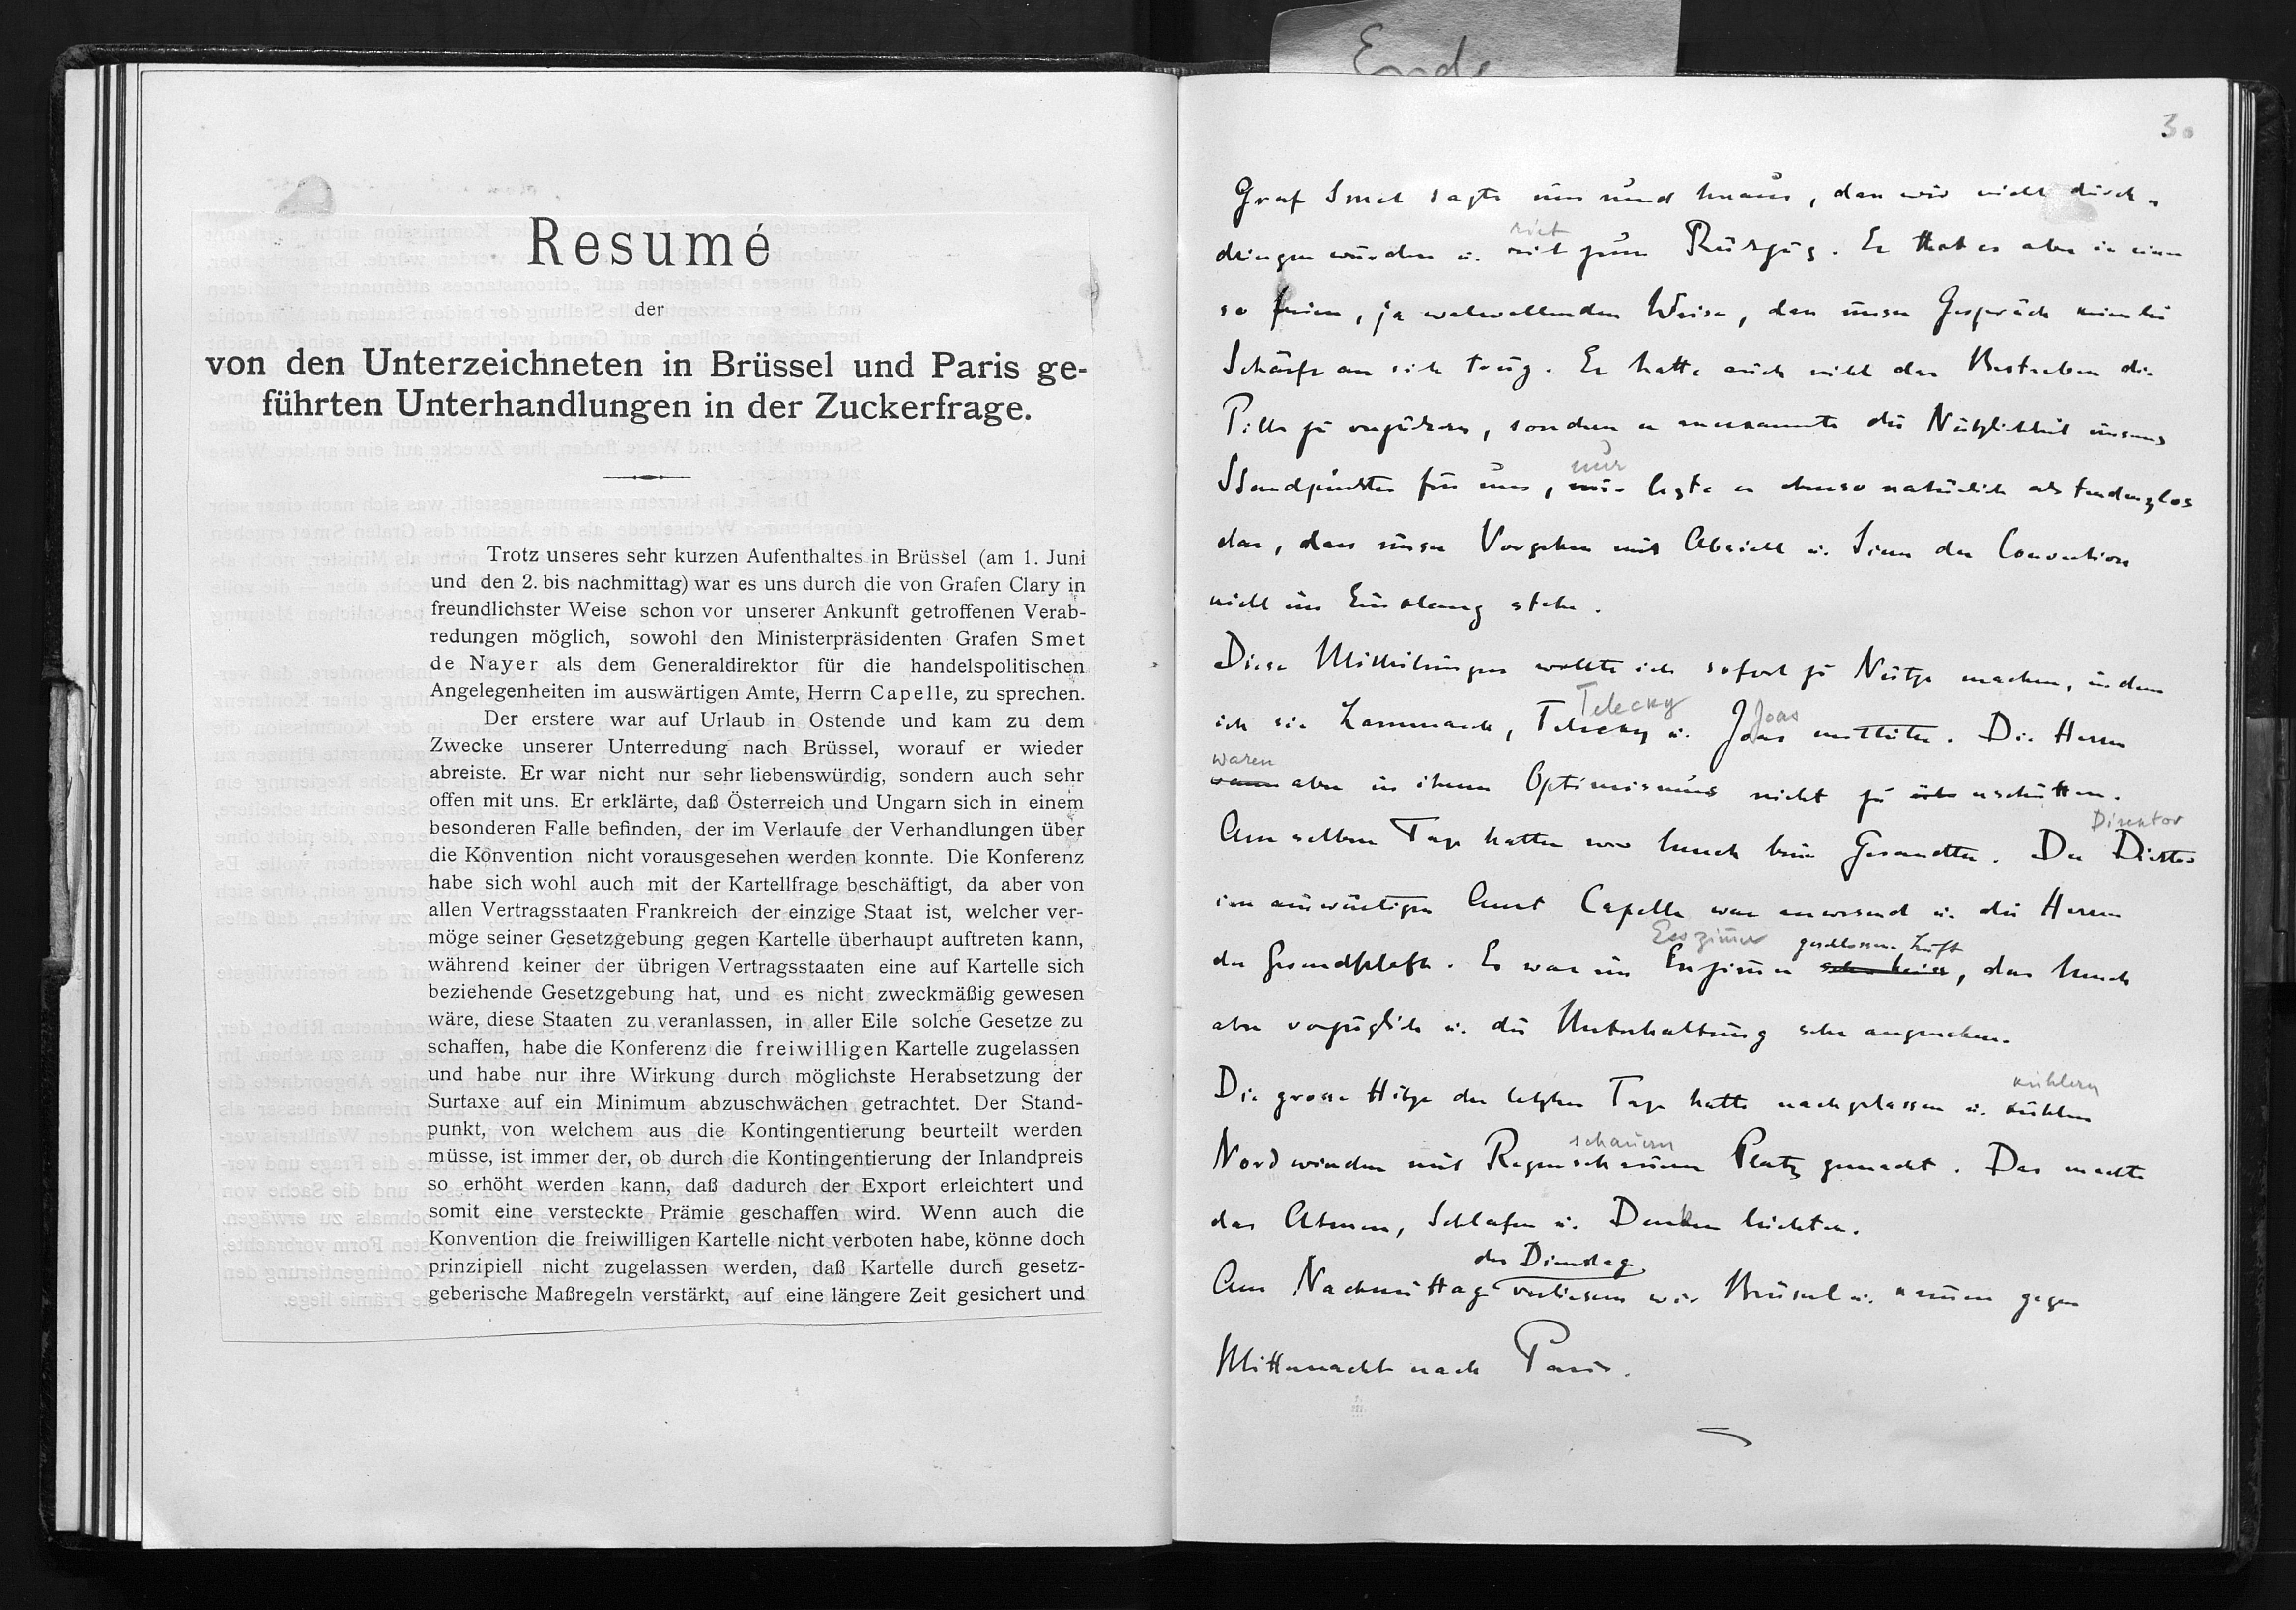 Ende
Resumé
der
von den Unterzeichneten in Brüssel und Paris ge-
führten Unterhandlungen in der Zuckerfrage.
Trotz unseres sehr kurzen Aufenthaltes in Brüssel (am 1. Juni
und den 2. bis nachmittag) war es uns durch die von Grafen Clary in
freundlichster Weise schon vor unserer Ankunft getroffenen Verab-
redungen möglich, sowohl den Ministerpräsidenten Grafen Smet
de Nayer als dem Generaldirektor für die handelspolitischen
Angelegenheiten im auswärtigen Amte, Herrn Capelle, zu sprechen.
Der erstere war auf Urlaub in Ostende und kam zu dem
Zwecke unserer Unterredung nach Brüssel, worauf er wieder
abreiste. Er war nicht nur sehr liebenswürdig, sondern auch sehr
offen mit uns. Er erklärte, daß Österreich und Ungarn sich in einem
besonderen Falle befinden, der im Verlaufe der Verhandlungen über
die Konvention nicht vorausgesehen werden konnte. Die Konferenz
habe sich wohl auch mit der Kartellfrage beschäftigt, da aber von
allen Vertragsstaaten Frankreich der einzige Staat ist, welcher ver-
möge seiner Gesetzgebung gegen Kartelle überhaupt auftreten kann,
während keiner der übrigen Vertragsstaaten eine auf Kartelle sich
beziehende Gesetzgebung hat, und es nicht zweckmäßig gewesen
wäre, diese Staaten zu veranlassen, in aller Eile solche Gesetze zu
schaffen, habe die Konferenz die freiwilligen Kartelle zugelassen
und habe nur ihre Wirkung durch möglichste Herabsetzung der
Surtaxe auf ein Minimum abzuschwächen getrachtet. Der Stand-
punkt, von welchem aus die Kontingentierung beurteilt werden
müsse, ist immer der, ob durch die Kontingentierung der Inlandpreis
so erhöht werden kann, daß dadurch der Export erleichtert und
somit eine versteckte Prämie geschaffen wird. Wenn auch die
Konvention die freiwilligen Kartelle nicht verboten habe, könne doch
prinzipiell nicht zugelassen werden, daß Kartelle durch gesetz-
geberische Maßregeln verstärkt, auf eine längere Zeit gesichert und
Graf Smet sagte uns rund heraus, dass wir nicht durch-
riet
dringen würden u. riet zum Rückzug. Er that es aber in einer
so feinen, ja wolwollenden Weise, dass unser Gespräch keinerlei
Schärfe an sich trug. Er hatte auch nicht das Bestreben die
Pille zu verzuckern, sondern er anerkannte die Nützlichkeit unseres
nur
Standpunktes für uns, nur legte er ebenso natürlich als tendenzlos
dar, dass unser Vorgehen mit Absicht u. Sinn der Convention
nicht im Einklang stehe.
Diese Mittheilungen wollte ich sofort zu Nutze machen, indem
Telecky Joas
ich sie Lammasch, Telecky u. Joas mittheilte. Die Herren
waren
waren aber in ihrem Optimismus nicht zu erschüttern.
Direktor
Am selben Tage hatten wir lunch beim Gesandten. Der Direktor
im auswärtigen Amt Capelle war anwesend u. die Herren
Esszimmer geschlossene Luft
der Gesandtschaft. Es war im Esszimmer sehr heiss, das lunch
aber vorzüglich u. die Unterhaltung sehr angenehm.
kühlern
Die grosse Hitze der letzten Tage hatte nachgelassen u. kühlern
schauern
Nordwinden mit Regenschauern Platz gemacht. Das machte
das Atmen, Schlafen u. Denken leichter.
des Dienstag
Am Nachmittag verliessen wir Brüssel u. kamen gegen
Mitternacht nach Paris.